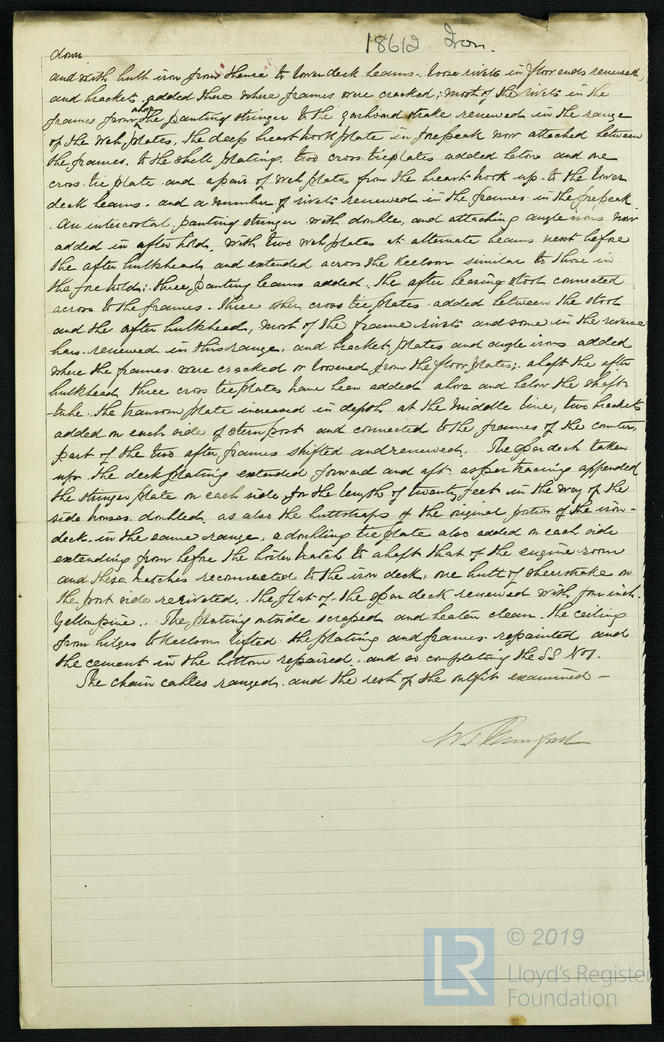 18612 Iron.
down
and with bulb iron from thence to lower deck beams. loose rivets in floor ends renewed,
and brackets added there where frames were cracked; most of the rivets in the
frames from above the panting stringer to the garboard strake renewed in the range
of the web plates, the deep hearthook plate in forepeak now attached between
the frames, to the shell plating, two cross tieplates added below and one
cross tie plate and a pair of web plates from the heart hook up to the lower
deck beams. and a number of rivets renewed in the frames in the forepeak
An intercostal panting stringer with double, and attaching angle irons now
added in after hold, with two web plates at alternate beams next before
the after bulkhead, and extended across the keelson similar to those in
the fore hold; three panting beams added, the after bearing stool connected
across to the frames. three cross tie plates added between the stool
and the after bulkhead, most of the frame rivets and some in the reverse
bars renewed in this range, and bracket plates and angle irons added
where the frames were cracked or loosened from the floor plates; abaft the after
bulkhead three cross tie plates have been added above and below the shaft
tube. the transom plate increased in depth at the middle line, two brackets
added on each side of sternpost and connected to the frames of the counter,
part of the two after frames shifted and renewed. The spar deck taken
up. the deck plating extended forward and aft as per tracing appended
the stringer plate on each side for the length of twenty feet in the way of the
side houses doubled, as also the buttstraps of the original portion of the iron-
deck in the same range, a doubling tie plate also added on each side
extending from before the boiler hatch to abaft that of the engine room
and these hatches reconnected to the iron deck, one butt of sheerstrake on
the port side rerivetted. the flat of the spar deck renewed with four inch
Yellow pine.. The plating outside scraped and beaten clean. the ceiling
from bilges to keelson lifted the plating and frames repainted and
the cement in the bottom repaired, and so completing the SS No1.
The chain cables ranged, and the rest of the outfit examined -
© 2019
LR
Lloyd's Register
Foundation